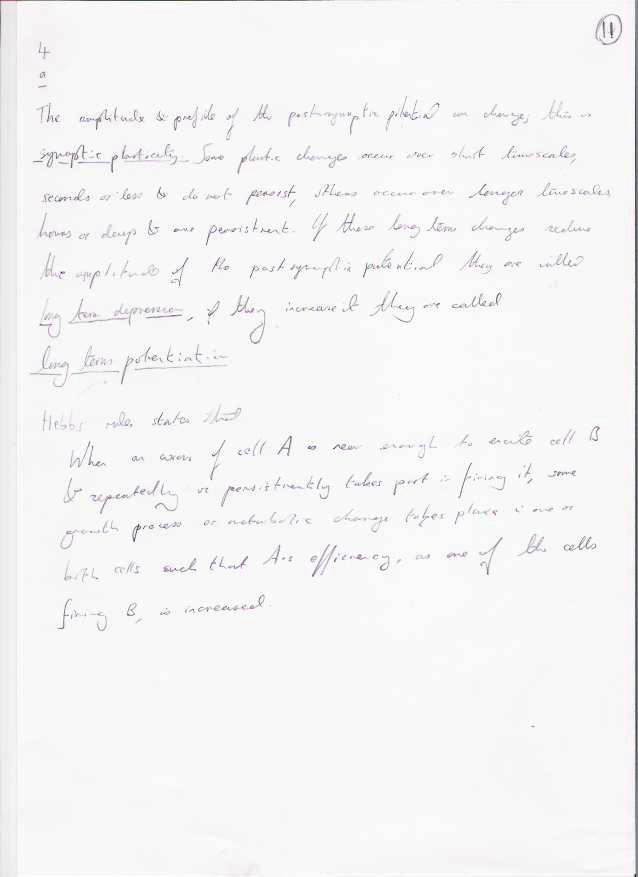 11
4
a
The amplitude & profile of the post-synaptic potential can change, this is
synaptic plasticity. Some plastic changes occur over short timescales,
seconds or less & do not persist, others occur over longer timescales,
hours or days & are persistent. If these long term changes reduce
the amplitude of the post-synaptic potential they are called
long term depression, if they increase it they are called
long term potentiation
Hebbs rules states that
When an axon of cell A is near enough to excite cell B
& repeatedly or persistently takes part in firing it, some
growth process or metabolic change takes place in one or
both cells such that A's efficiency, as one of the cells
firing B, is increased.